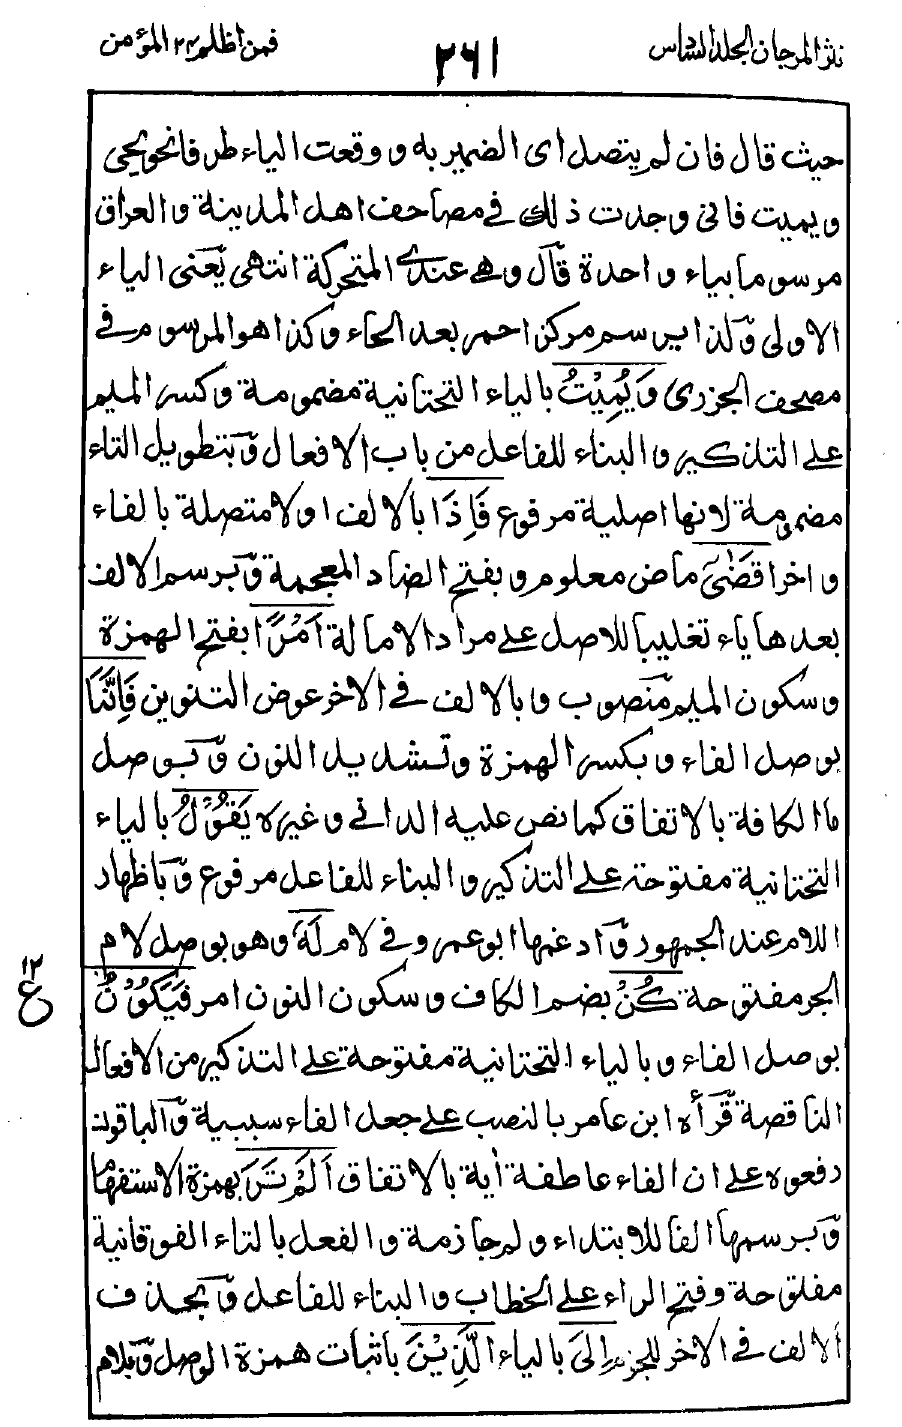 نثر المرجان الجلد السادس
٢٦١
فمن اظلم ٢٤ المؤمن
حيث قال فان لم يتصل اى الضمير به و وقعت الياء طرفا نحو يحيى
ويميت فانى وجدت ذلك فى مصاحف اهل المدينة والعراق
مرسوما بياء واحدة قال وهى عندى المتحركة انتهى يعنى الياء
الاولى ولذا يرسم مركز احمر بعد الحاء وكذا هو المرسوم فى
مصحف الجزرى وَيُمِيْتُ بالياء التحتانية مضمومة وكسر الميم
على التذكير والبناء للفاعل من باب الافعال وبتطويل التاء
مضمومة لانها اصلية مرفوع فَاِذَا بالالف اولا متصلة بالفاء
واخرا قَضٰىَ ماض معلوم وبفتح الضاد المعجمة وبرسم الالف
بعدها ياء تغليبا للاصل على مراد الامالة اَمْرًا بفتح الهمزة
وسكون الميم منصوب وبالالف فى الاخر عوض التنوين فَاِنَّمَا
بوصل الفاء وبكسر الهمزة وتشديد النون وبوصل
ما الكافة بالاتفاق كما نص عليه الدانى وغيره يَقُوْلُ بالياء
التحتانية مفتوحة على التذكير والبناء للفاعل مرفوع وباظهار
اللام عند الجمهور وادغمها ابو عمرو فى لام لَهٗ وهو بوصل لام
الجر مفتوحة كُنْ بضم الكاف وسكون النون امر فَيَكُوْنُ
١٢
ع
بوصل الفاء وبالياء التحتانية مفتوحة على التذكير من الافعال
الناقصة قرأه ابن عامر بالنصب على جعل الفاء سببية والباقون
رفعوه على ان الفاء عاطفة اية بالاتفاق اَلَمْ تَرَ بهمزة الاستفهام
وبرسمها الفا للابتداء ولم جازمة والفعل بالتاء الفوقانية
مفتوحة وفتح الراء على الخطاب والبناء للفاعل وبحذف
الالف فى الاخر للجزم اِلَى بالياء الَّذِيْنَ باثبات همزة الوصل وبلام